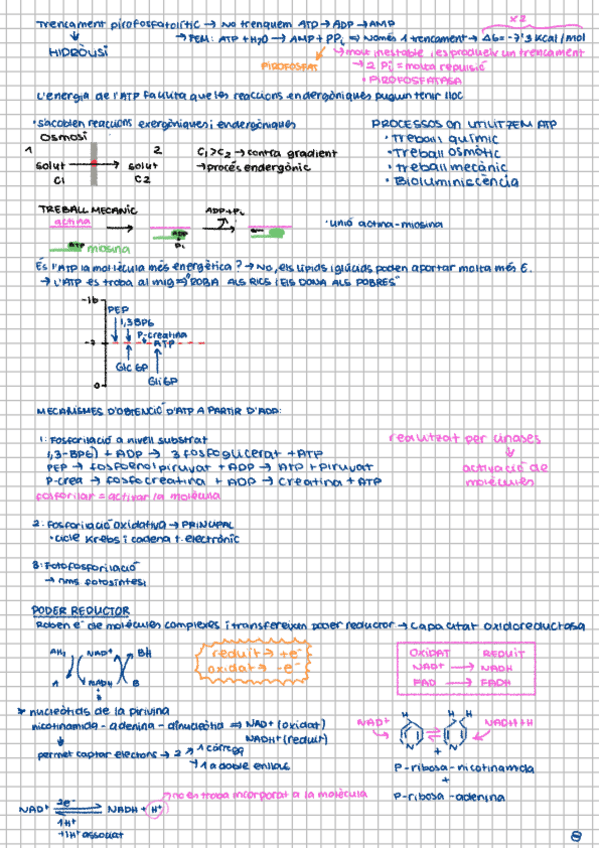 Trencament pirofosfatolític → No trenquem ATP → ADP → AMP
x2
↓ → FEM: ATP + H2O → AMP + PPi → Només 1 trencament → ΔG = -7'3 Kcal/mol
HIDRÒLISI
→ molt inestable, es produeix un trencament
PIROFOSFAT
→ 2 Pi = molta repulsió
• PIROFOSFATASA
L'energia de l'ATP facilita que les reaccions endergòniques puguin tenir lloc
• S'acoblen reaccions exergòniques i endergòniques
PROCESSOS ON UTILITZEM ATP
OSMOSI
• Treball químic
1 2 C1 > C2 → contra gradient
• Treball osmòtic
solut → solut → procés endergònic
• treball mecànic
C1 C2
• Bioluminiscència
TREBALL MECÀNIC
ADP + Pi
actina
• unió actina-miosina
ATP miosina
ADP
Pi
És l'ATP la molècula més energètica? → No, els lípids i glúcids poden aportar molta més E.
→ L'ATP es troba al mig ⇒ "ROBA ALS RICS I ELS DONA ALS POBRES"
-16
PEP
1,3BPG
P-creatina
-7
ATP
Glc 6P
Gli 6P
0
MECANISMES D'OBTENCIÓ D'ATP A PARTIR D'ADP:
1: Fosforilació a nivell substrat
realitzat per cinases
1,3-BPG) + ADP → 3 fosfoglicerat + ATP
↓
PEP → fosfoenolpiruvat + ADP → ATP + piruvat
activació de
P-crea → fosfocreatina + ADP → creatina + ATP
molècules
fosforilar = activar la molècula
2: Fosforilació oxidativa → PRINCIPAL
• cicle Krebs i cadena t. electrònic
3: Fotofosforilació
→ nms fotosíntesi
PODER REDUCTOR
Roben e- de molècules complexes i transfereixen poder reductor → capacitat oxidoreductasa
AH2 NAD+ BH
reduït → +e-
oxidat → -e-
OXIDAT REDUIT
NAD+ → NADH
FAD → FADH
A NADH B
nucleòtids de la
nicotinamida - adenina - dinucleòtid ⇒ NAD+ (oxidat)
NADH+ (reduït)
NAD+
H
H H
NADH+H
↓
permet captar electrons → 2
→ 1 a doble enllaç
N
N
+
P-ribosa-nicotinamida
+
P-ribosa-adenina
→ no en troba incorporat a la molècula
NAD+ 2e- NADH + H+
1H+
+1H+ associat
8